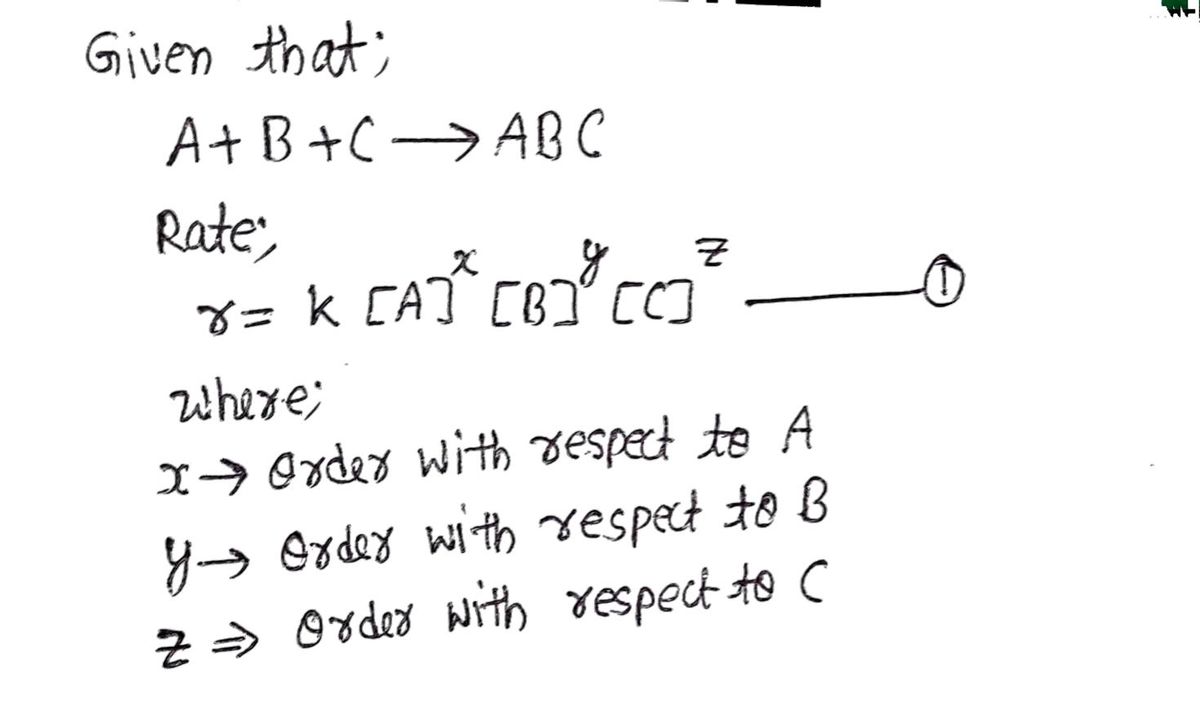 Given that;
A + B + C ⟶ ABC
Rate;
r = k [A]^x [B]^y [C]^z —— ①
where;
x → Order with respect to A
y → Order with respect to B
z ⇒ Order with respect to C